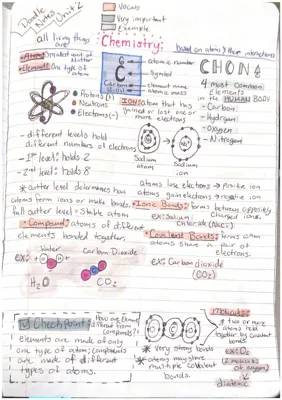 Doodle Notes Unit 2
Vocab
Very important
Example
all living things are
Chemistry:
based on atoms & their interactions
Atoms: smallest unit of matter
Element: One type of atom
6
C
Carbon
atomic number
Symbol
element name
atomic mass
CHON
4 most common elements in the HUMAN BODY
- Carbon
- Hydrogen
- Oxygen
- Nitrogen
Protons (+)
Neutrons
Electrons (-)
ION: atom that has gained or lost one or more electrons
Sodium atom
Sodium ion
- different levels hold different numbers of electrons
- 1st level: holds 2
- 2nd level: holds 8
* outter level determines how atoms form ions or make bonds.
full outter level = Stable atom
atoms lose electrons → Positive ion
atoms gain electrons → negative ion
• Ionic Bonds: forms between oppositely charged ions.
ex: Sodium chloride (NaCl)
• Compound: atoms of different elements bonded together.
• Covalent Bonds: forms when atoms share a pair of electrons.
ex: Carbon dioxide (CO2)
ex:
Water
H2O
Carbon Dioxide
CO2
Check Point:
How are elements different from compounds?
elements are made of only one type of atom; compounds are made of different types of atoms.
* very strong bonds
* atoms may share multiple covalent bonds.
molecules:
2 or more atoms held together by covalent bonds
ex: O2
(2 molecules of oxygen)
diatomic